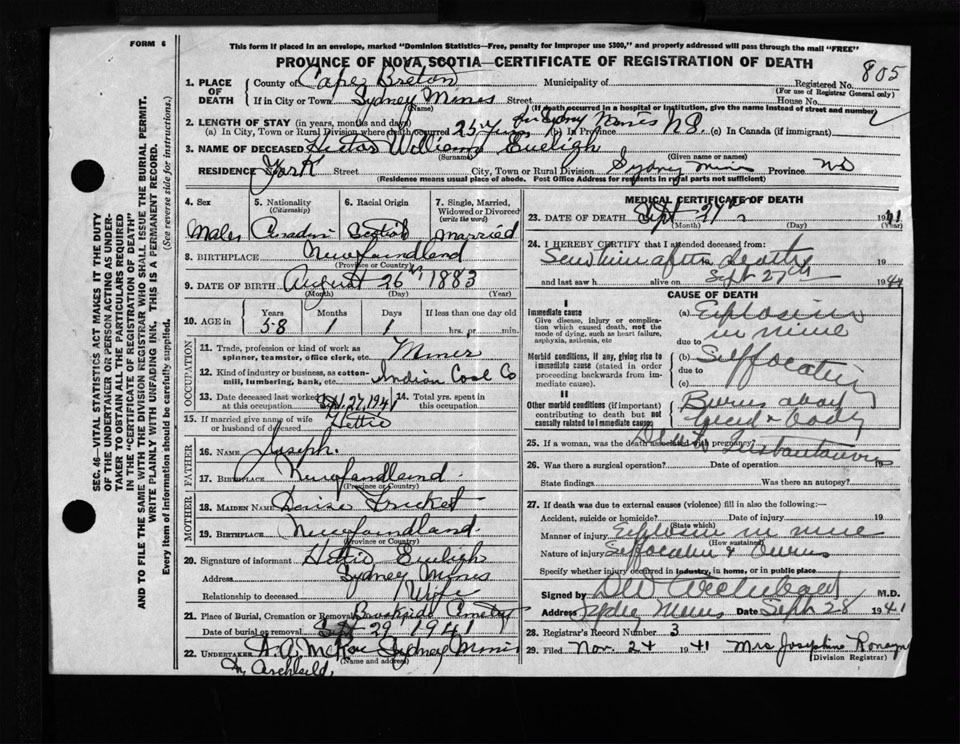 FORM 6
This form if placed in an envelope, marked "Dominion Statistics—Free, penalty for improper use $300," and properly addressed will pass through the mail "FREE"
PROVINCE OF NOVA SCOTIA—CERTIFICATE OF REGISTRATION OF DEATH
805
1. PLACE OF DEATH County of Cape Breton Municipality of Registered No.
(For use of Registrar General only)
If in City or Town Sydney Mines Street House No.
(Name) (If death occurred in a hospital or institution, give the name instead of street and number)
2. LENGTH OF STAY (in years, months and days)
(a) In City, Town or Rural Division where death occurred 25 years (b) In Province (c) In Canada (if immigrant)
in Sydney Mines N.S.
3. NAME OF DECEASED William
(Surname) (Given name or names)
RESIDENCE York Street City, Town or Rural Division Sydney Mines Province NS
(Residence means usual place of abode. Post Office Address for residents in rural parts not sufficient)
4. Sex Male
5. Nationality (Citizenship) Canadian
6. Racial Origin
7. Single, Married, Widowed or Divorced (write the word) Married
8. BIRTHPLACE Newfoundland
(Province or Country)
9. DATE OF BIRTH August 26th 1883
(Month) (Day) (Year)
10. AGE in Years Months Days If less than one day old
58 1 1 hrs. or min.
OCCUPATION
11. Trade, profession or kind of work as spinner, teamster, office clerk, etc. Miner
12. Kind of industry or business, as cotton-mill, lumbering, bank, etc. Indian Coal Co
13. Date deceased last worked at this occupation Sept 27, 1941
14. Total yrs. spent in this occupation
15. If married give name of wife or husband of deceased Hettie
FATHER
16. NAME Joseph
17. BIRTHPLACE Newfoundland
(Province or Country)
MOTHER
18. MAIDEN NAME
19. BIRTHPLACE Newfoundland
(Province or Country)
20. Signature of informant Hettie
Address Sydney Mines
Relationship to deceased Wife
21. Place of Burial, Cremation or Removal Brookside Cemetery
Date of burial or removal Sept 29 1941
22. UNDERTAKER A. A. McRae Sydney Mines
(Name and address)
MEDICAL CERTIFICATE OF DEATH
23. DATE OF DEATH Sept 27th 1941
(Month) (Day) (Year)
24. I HEREBY CERTIFY that I attended deceased from:
Seen him after death 19
and last saw h alive on Sept 27th 1941
CAUSE OF DEATH
I
Immediate cause
Give disease, injury or complication which caused death, not the mode of dying, such as heart failure, asphyxia, asthenia, etc
(a) Explosion in mine
due to
Morbid conditions, if any, giving rise to immediate cause (stated in order proceeding backwards from immediate cause).
(b) Suffocation
due to
(c)
II
Other morbid conditions (if important) contributing to death but not causally related to immediate cause
Burns about head & body
Death Instantaneous
25. If a woman, was the death associated with pregnancy?
26. Was there a surgical operation? Date of operation 19
State findings Was there an autopsy?
27. If death was due to external causes (violence) fill in also the following:
Accident, suicide or homicide? Date of injury 19
(State which)
Manner of injury Explosion in mine
(How sustained)
Nature of injury Suffocation & Burns
Specify whether injury occurred in industry, in home, or in public place
Signed by M.D.
Address Sydney Mines Date Sept 28 1941
28. Registrar's Record Number 3
29. Filed Nov. 24 1941 Mrs Josephine
(Division Registrar)
SEC. 46—VITAL STATISTICS ACT MAKES IT THE DUTY
OF THE UNDERTAKER OR PERSON ACTING AS UNDERTAKER
TO OBTAIN ALL THE PARTICULARS REQUIRED
IN THE "CERTIFICATE OF REGISTRATION OF DEATH"
AND TO FILE THE SAME WITH THE DIVISION REGISTRAR WHO SHALL ISSUE THE BURIAL PERMIT.
WRITE PLAINLY WITH UNFADING INK. THIS IS A PERMANENT RECORD.
Every item of information should be carefully supplied. (See reverse side for instructions.)